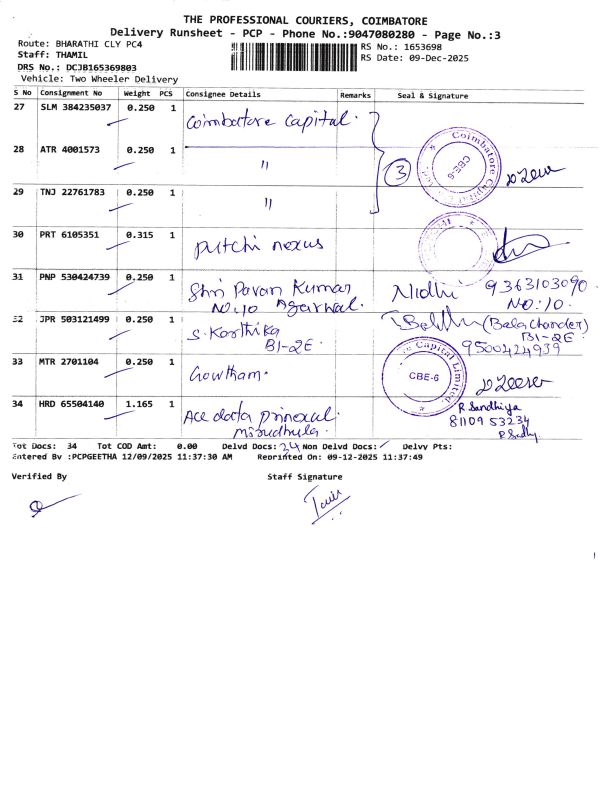 THE PROFESSIONAL COURIERS, COIMBATORE
Delivery Runsheet - PCP - Phone No.:9047080280 - Page No.:3
Route: BHARATHI CLY PC4
RS No.: 1653698
Staff: THAMIL
RS Date: 09-Dec-2025
DRS No.: DCJB165369803
Vehicle: Two Wheeler Delivery
S No Consignment No Weight PCS Consignee Details Remarks Seal & Signature
27 SLM 384235037 0.250 1 Coimbatore Capital.
28 ATR 4001573 0.250 1 " 3 Coimbatore Capital CBE-6
29 TNJ 22761783 0.250 1 "
30 PRT 6105351 0.315 1 putchi nexus
31 PNP 530424739 0.250 1 Shri Pavan Kumar Nidhi 9363103090
No:10 Agarwal. NO:10.
32 JPR 503121499 0.250 1 S. Karthika (Balachander)
B1-2E. B1-2E
9500424939
33 MTR 2701104 0.250 1 Gowtham. Capital Limited CBE-6
34 HRD 65504140 1.165 1 Ace data R Sandhiya
81109 53234
Tot Docs: 34 Tot COD Amt: 0.00 Delvd Docs: 34 Non Delvd Docs: Delvy Pts:
Entered By :PCPGEETHA 12/09/2025 11:37:30 AM Reprinted On: 09-12-2025 11:37:49
Verified By Staff Signature